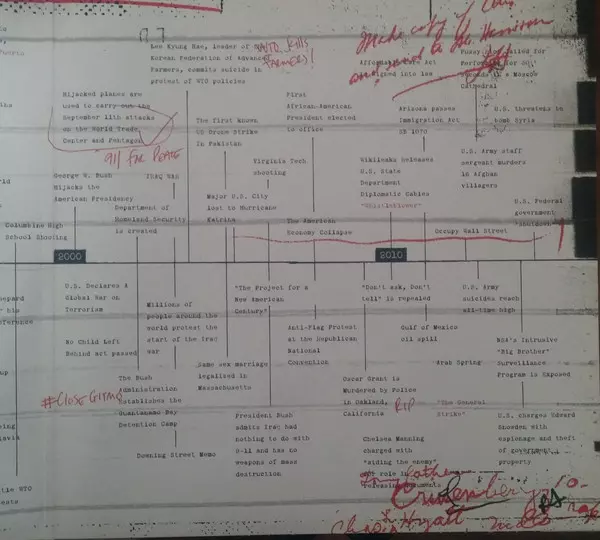 Made copy of
and send to
Lee Kyung Hae, leader of
Korean Federation of Advanced
Farmers, commits suicide in
protest of WTO policies
WTO Kills
FARMERS!
Hijacked planes are
used to carry out the
September 11th attacks
on the World Trade
Center and Pentagon
911 FOR PEACE
The first known
US Drone Strike
In Pakistan
First
African-American
President elected
to office
Affordable Care Act
signed into law
Pussy Riot jailed for
in a Moscow
Cathedral
Arizona passes
Immigration Act
SB 1070
U.S. threatens to
bomb Syria
George W. Bush
Hijacks the
American Presidency
IRAQ WAR
Virginia Tech
shooting
Wikileaks releases
U.S. State
Department
Diplomatic Cables
"Whistleblower"
U.S. Army staff
sergeant murders
in Afghan
villagers
Columbine High
School Shooting
Department of
Homeland Security
is created
Major U.S. City
lost to Hurricane
Katrina
The American
Economy Collapse
Occupy Wall Street
U.S. Federal
government
"shutdown"
2000
2010
U.S. Declares A
Global War on
Terrorism
Millions of
people around the
world protest the
start of the Iraq
war
"The Project for a
New American
Century"
"Don't ask, Don't
tell" is repealed
U.S. Army
suicides reach
all-time high
No Child Left
Behind act passed
Anti-Flag Protest
at the Republican
National
Convention
Gulf of Mexico
oil spill
NSA's Intrusive
"Big Brother"
Surveillance
Program is Exposed
Same sex marriage
legalized in
Massachusetts
Arab Spring
The Bush
Administration
Establishes the
Guantanamo Bay
Detention Camp
#CLOSE GITMO
Oscar Grant is
Murdered by Police
in Oakland,
California
RIP
"The General
Strike"
President Bush
admits Iraq had
nothing to do with
9-11 and has no
weapons of mass
destruction
Chelsea Manning
charged with
"aiding the enemy"
role in
releasing documents
U.S. charges Edward
Snowden with
espionage and theft
of government
property
Downing Street Memo
WTO